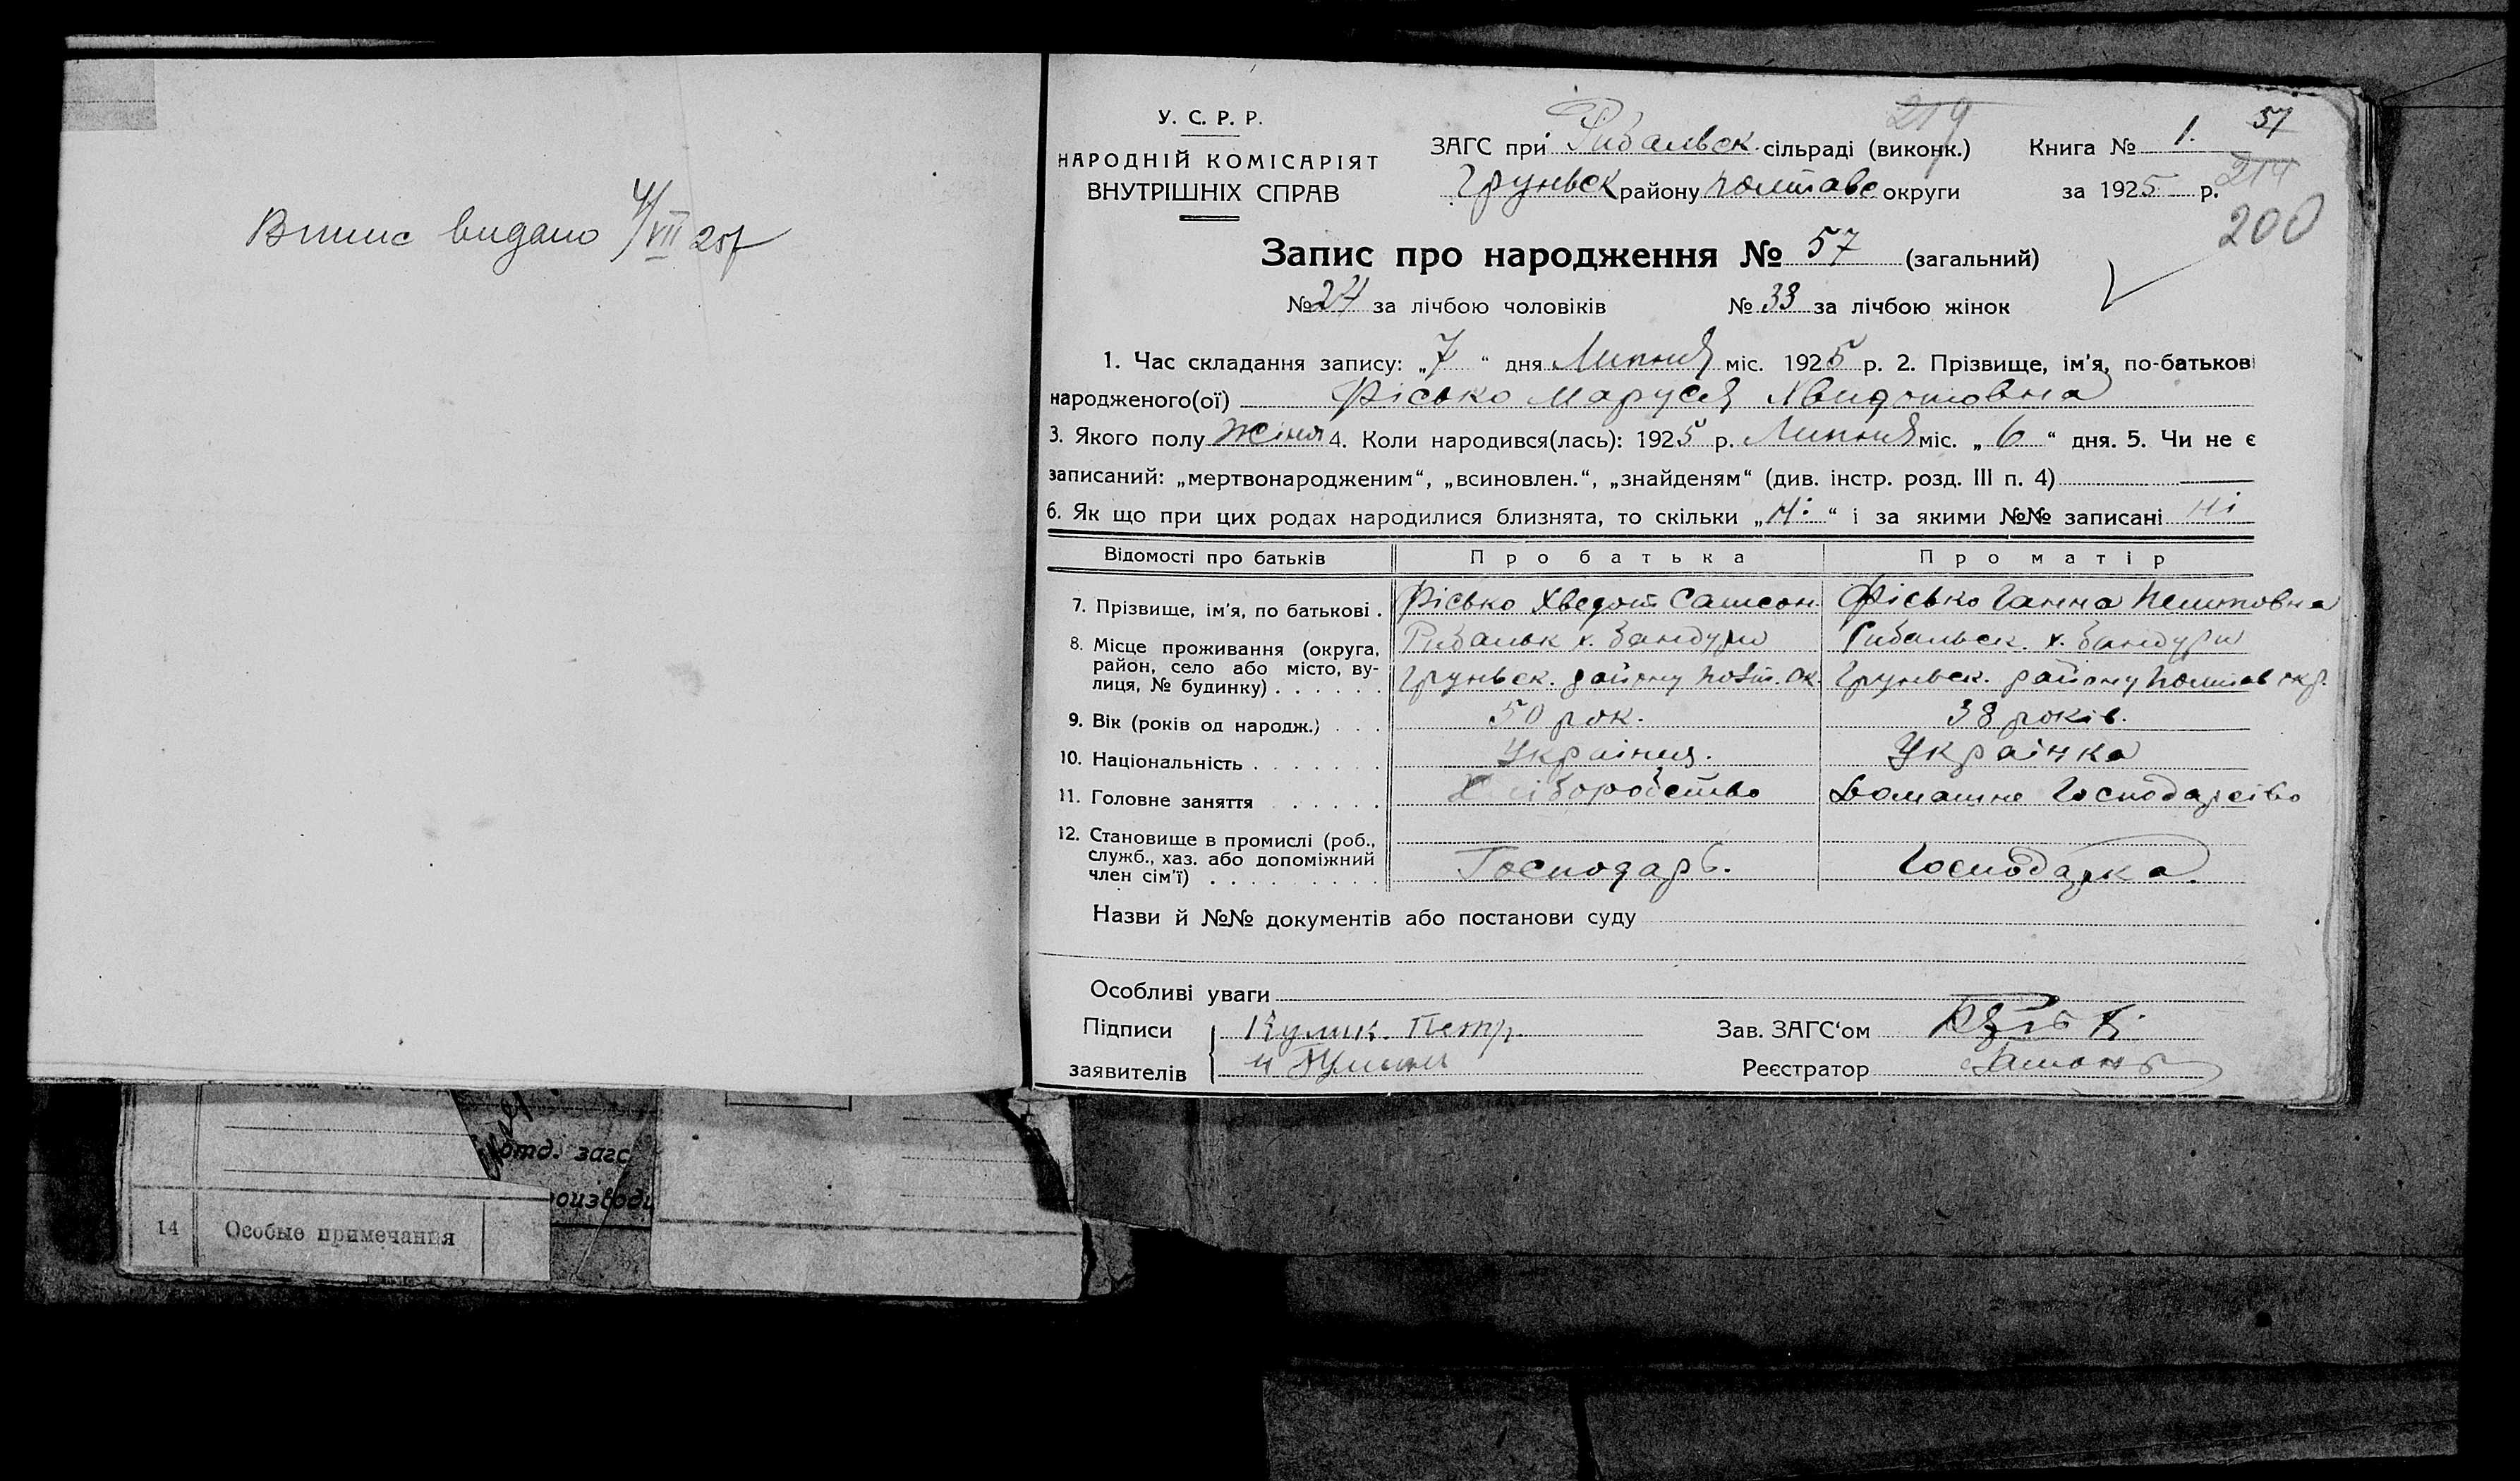 Випис видано 4/VII 25р
У. С. Р. Р.
НАРОДНІЙ КОМІСАРІЯТ
ВНУТРІШНІХ СПРАВ
ЗАГС при Рибальск. сільраді (виконк.)
Груньск району Полтавс округи
219
Книга № 1. 57
за 1925 р. 214
200
Запис про народження № 57 (загальний)
№ 24 за лічбою чоловіків № 33 за лічбою жінок
1. Час складання запису: „7“ дня Липня міс. 1925 р. 2. Прізвище, ім'я, по-батькові
народженого(ої) Фісько Маруся Хвидотовна
3. Якого полу жіноч 4. Коли народився(лась): 1925 р. Липня міс. „6“ дня. 5. Чи не є
записаний: „мертвонародженим“, „всиновлен.“, „знайденям“ (див. інстр. розд. III п. 4)
6. Як що при цих родах народилися близнята, то скільки „ні“ і за якими №№ записані ні
Відомості про батьків Про батька Про матір
7. Прізвище, ім'я, по батькові . Фісько Хведот Самсон. Фісько Ганна
8. Місце проживання (округа, Рибальк х. Бандури Рибальск. х. Бандури
район, село або місто, ву- Груньск. району Полт. ок. Груньск. району Полтав окр.
лиця, № будинку) . . . . . .
9. Вік (років од народж.) . . . 50 рок. 38 років.
10. Національність . . . . . . . Украінця. Украінка
11. Головне заняття . . . . . . Хліборобство Домашне Господарство
12. Становище в промислі (роб.,
служб., хаз. або допоміжний Господарь. Господарка.
член сім'ї) . . . . . . . . .
Назви й №№ документів або постанови суду
Особливі уваги
Підписи Кулик. Петр. Зав. ЗАГС'ом
заявителів Реєстратор
отд. загс
14 Особые примечания